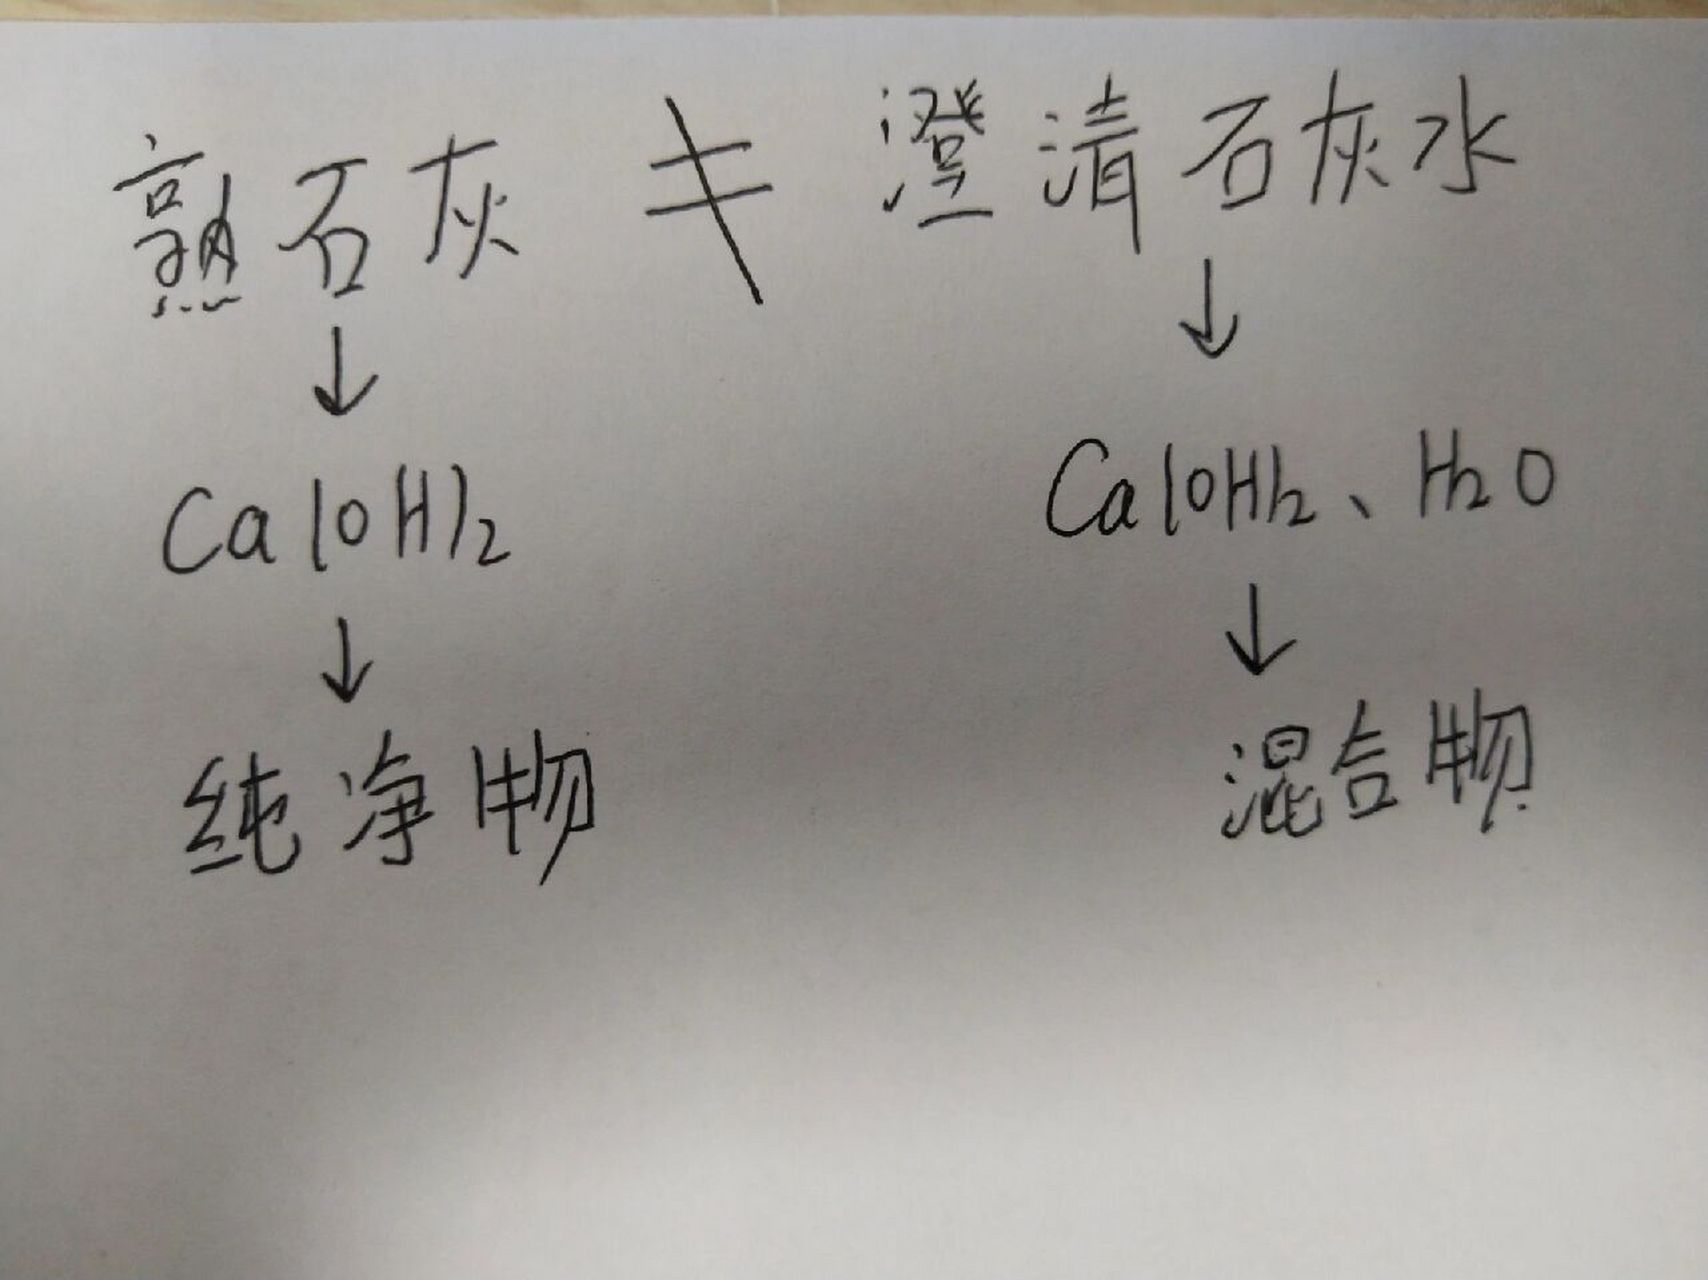 熟石灰 ≠ 澄清石灰水
↓ ↓
Ca(OH)2 Ca(OH)2、H2O
↓ ↓
纯净物 混合物